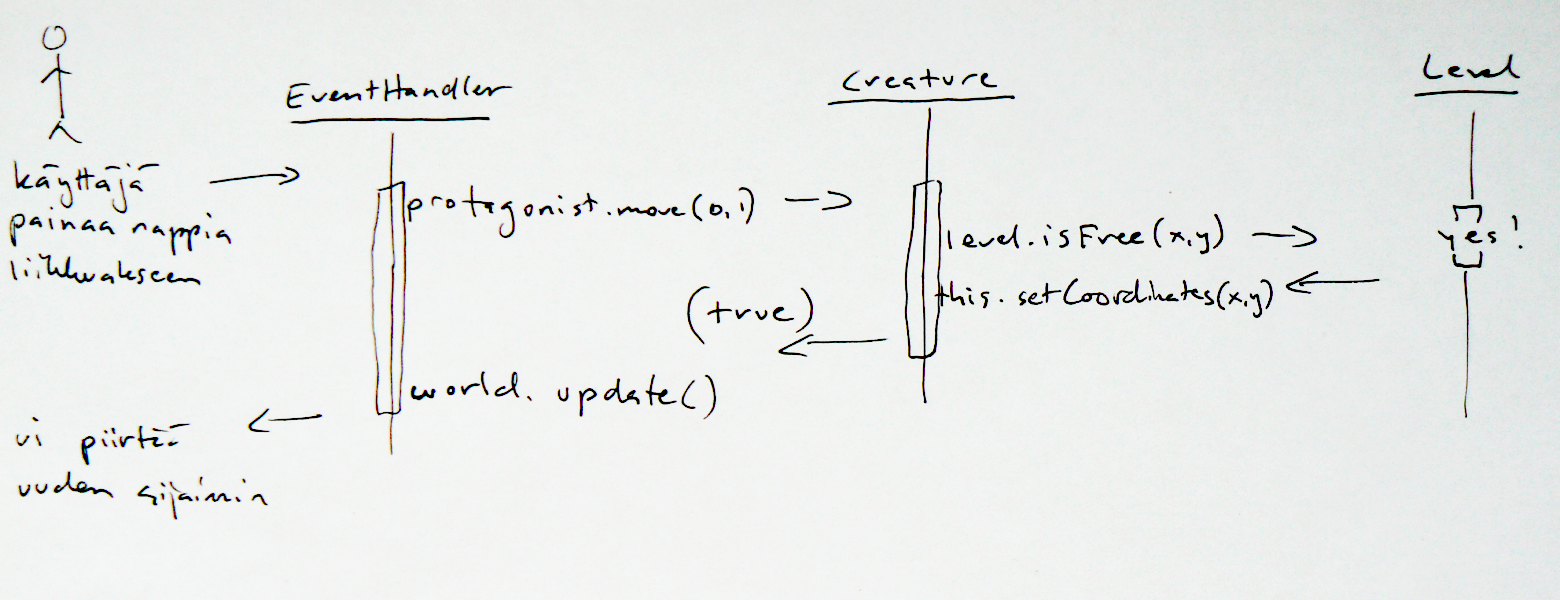 EventHandler
Creature
Level
käyttäjä
painaa nappia
liikkuakseen
protagonist.move(0,1)
level.isFree(x,y)
yes!
this.setCoordinates(x,y)
(true)
world.update()
ui piirtää
uuden sijainnin